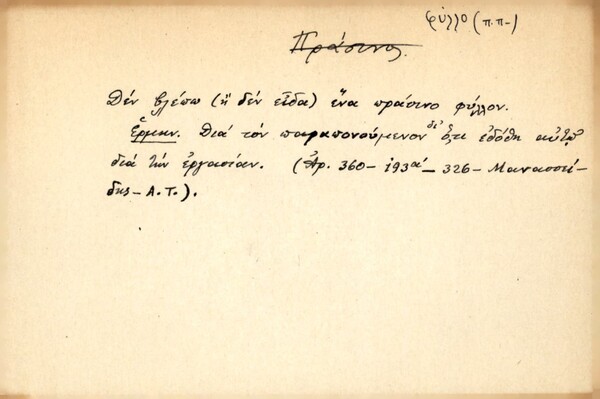 φύλλο (π.π-)
Πράσινος.
Δέν βλέπω (ἤ δέν εἶδα) ἕνα πράσινο φύλλον.
Ἑρμην. Διά τόν παραπονούμενον δι' ὅ,τι ἐδόθη αὐτῷ
διά τήν ἐργασίαν. (Ἀρ. 360 - 193α' - 326 - Μανασσεί-
δης - Α.Τ.).